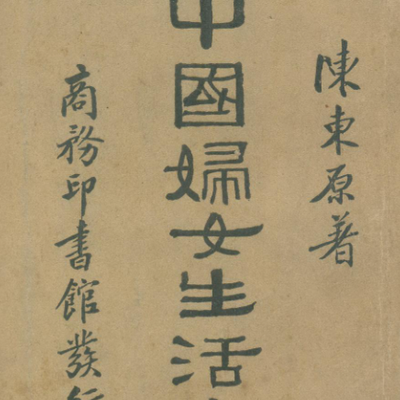 陳東原著
中國婦女生活
商務印書館發行